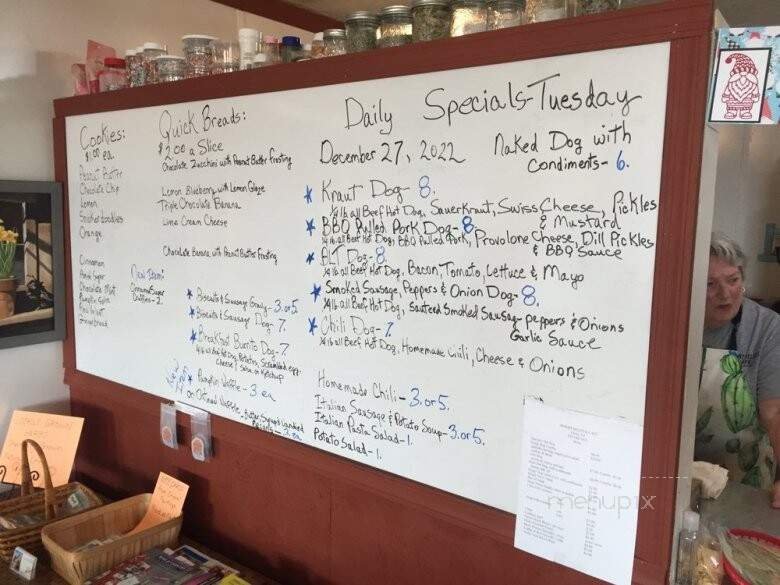 Cookies:
$1.00 ea.
Peanut Butter
Chocolate Chip
Lemon
Snickerdoodles
Orange
Cinnamon
Chocolate Mint
Gingerbread
Quick Breads:
$2.00 a Slice
Chocolate Zucchini with Peanut Butter Frosting
Lemon Blueberry with Lemon Glaze
Triple Chocolate Banana
Lime Cream Cheese
Chocolate Banana with Peanut Butter Frosting
New Item!
Biscuits & Sausage Gravy - 3. or 5.
Biscuit & Sausage Dog - 7.
Breakfast Burrito Dog - 7
1/4 lb all Beef Hot Dog, Potatoes, Scrambled egg,
Cheese & Salsa or Ketchup
Pumpkin Waffle - 3 ea
or Oatmeal Waffle
Daily Specials - Tuesday
December 27, 2022
Naked Dog with
Condiments - 6.
Kraut Dog - 8.
1/4 lb all Beef Hot Dog, Sauerkraut, Swiss Cheese, Pickles
& Mustard
BBQ Pulled Pork Dog - 8.
1/4 lb all Beef Hot Dog, BBQ Pulled Pork, Provolone Cheese, Dill Pickles
& BBQ Sauce
BLT Dog - 8.
1/4 lb all Beef Hot Dog, Bacon, Tomato, Lettuce & Mayo
Smoked Sausage, Peppers & Onion Dog - 8.
1/4 lb all Beef Hot Dog, Sauteed Smoked Sausage - peppers & Onions
Garlic Sauce
Chili Dog - 7.
1/4 lb all Beef Hot Dog, Homemade Chili, Cheese & Onions
Homemade Chili - 3. or 5.
Italian Sausage & Potato Soup - 3. or 5.
Italian Pasta Salad - 1.
Potato Salad - 1.
menupix